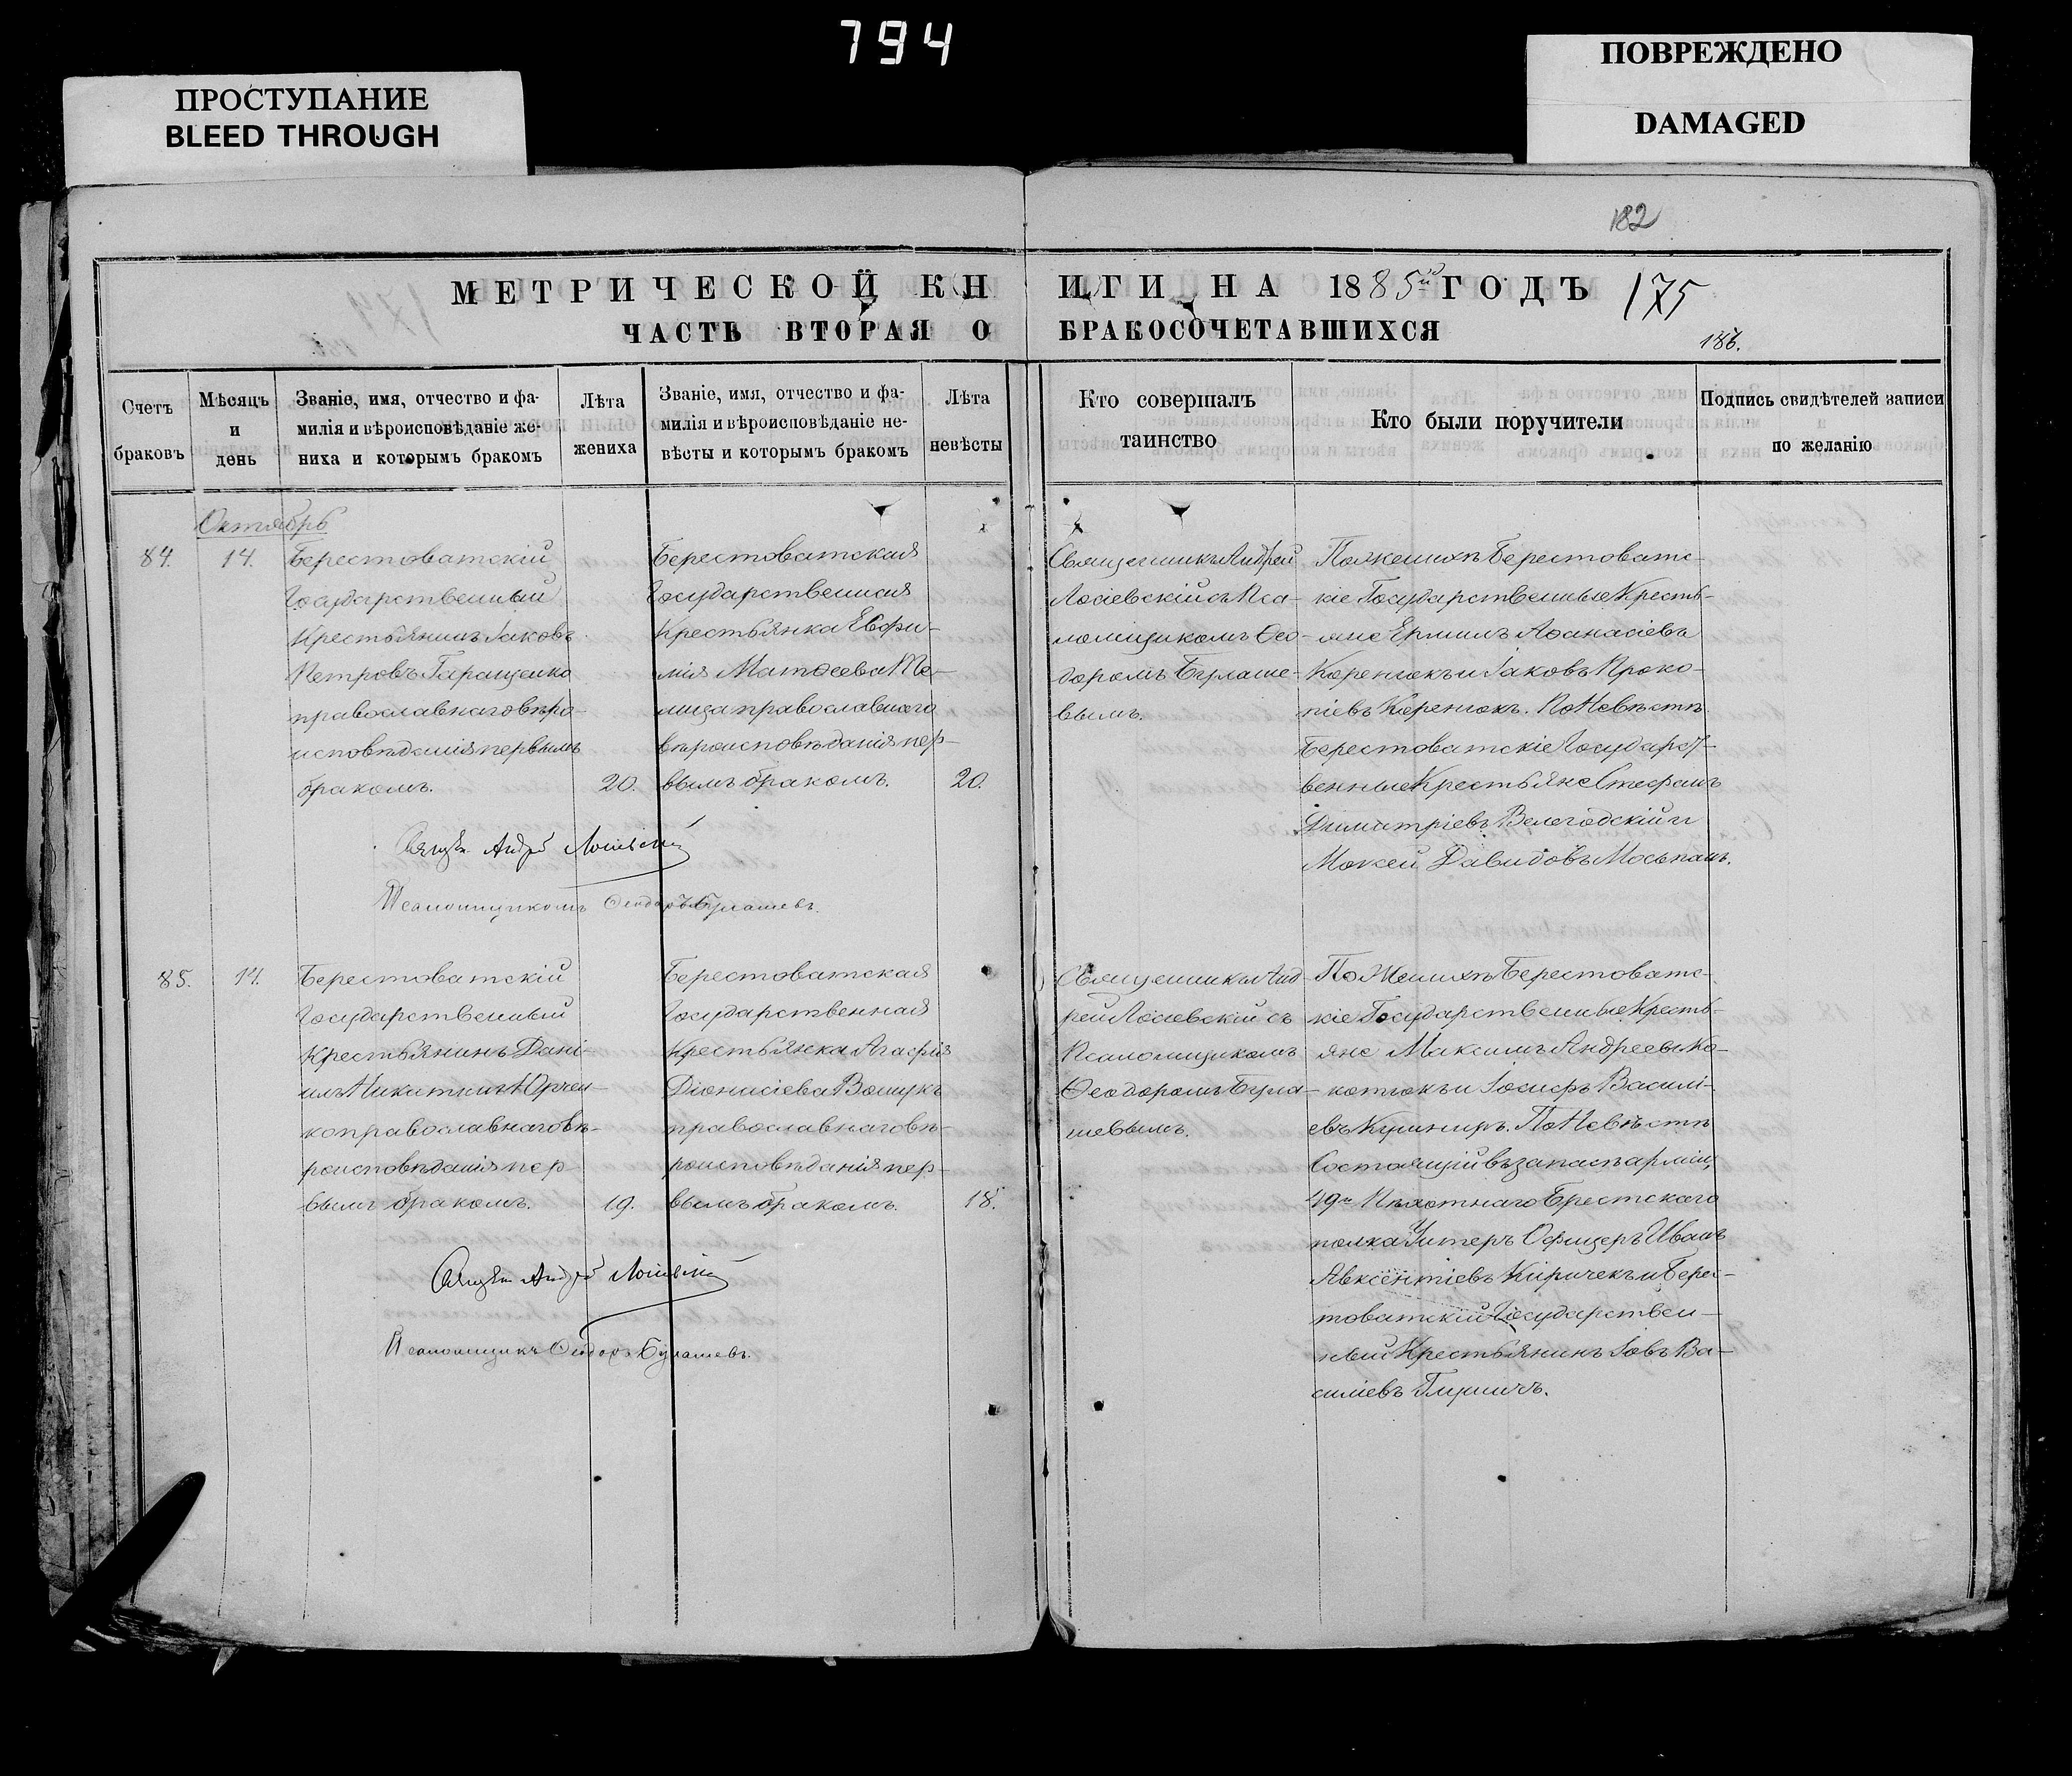 794
ПРОСТУПАНИЕ
BLEED THROUGH
ПОВРЕЖДЕНО
DAMAGED
182
МЕТРИЧЕСКОЙ КНИГИ НА 1885й ГОДЪ 175
ЧАСТЬ ВТОРАЯ О БРАКОСОЧЕТАВШИХСЯ
186.
Счетъ
браковъ
Мѣсяцъ
и
день
Званіе, имя, отчество и фа-
милія и вѣроисповѣданіе же-
ниха и которымъ бракомъ
Лѣта
жениха
Званіе, имя, отчество и фа-
милія и вѣроисповѣданіе не-
вѣсты и которымъ бракомъ
Лѣта
невѣсты
Кто совершалъ
таинство
Кто были поручители
Подпись свидѣтелей записи
по желанію
Октябрь
84.
14.
Берестоватскій
Государственный
Крестьянинъ Іаковъ
Петровъ Гаращенко
православнаго вѣро-
исповѣданія первымъ
бракомъ.
20.
Берестоватская
Государственная
Крестьянка Евфи-
мія Матѳеева
православнаго
вѣроисповѣданія пер-
вымъ бракомъ.
20.
Священникъ Андрей
Лосіевскій съ Пса-
ломщикомъ Ѳео-
доромъ Булаше-
вымъ.
По женихѣ Берестоватс-
кіе Государственные Кресть-
яне Ермилъ Аѳанасіевъ
Коренюкъ и Іаковъ Проко-
піевъ Коренюкъ. По Невѣстѣ
Берестоватскіе Государст-
венные Крестьяне Стефанъ
Димитріевъ Велегодскій и
Мокей Давидовъ Моспанъ.
Священ. Андрей Лосіевскій
Псаломщикомъ Ѳеодоръ Булашевъ.
85.
14.
Берестоватскій
Государственный
Крестьянинъ Дані-
илъ Никитинъ Юрчен-
ко православнаго вѣ-
роисповѣданія пер-
вымъ бракомъ.
19.
Берестоватская
Государственная
Крестьянка Агафія
Діонисіева Вощукъ
православнаго вѣ-
роисповѣданія пер-
вымъ бракомъ.
18.
Священникъ Анд-
рей Лосіевскій съ
Псаломщикомъ
Ѳеодоромъ Була-
шевымъ.
По Женихѣ Берестоватс-
кіе Государственные Кресть-
яне Максимъ Андреевъ Ко-
котюкъ и Іосифъ Василі-
евъ Кушниръ. По Невѣстѣ
Состоящій въ запасѣ арміи,
49го Пѣхотнаго Брестскаго
полка Унтеръ Офицеръ Иванъ
Авксентіевъ Киричекъ и Берес-
товатскій Государствен-
ный Крестьянинъ Іовъ Ва-
силіевъ
Священ. Андрей Лосіевскій
Псаломщикъ Ѳеодоръ Булашевъ.